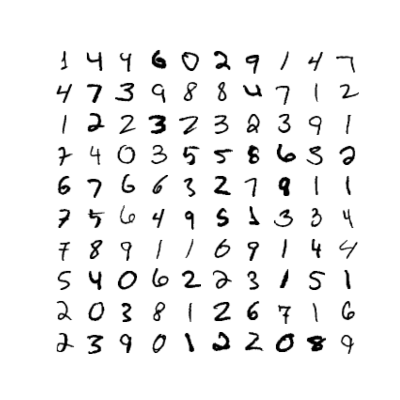 1 4 4 6 0 2 9 1 4 7
4 7 3 9 8 8 4 7 1 2
1 2 2 3 2 3 2 3 9 1
7 4 0 3 5 5 8 6 5 2
6 7 6 6 3 2 7 9 1 1
7 5 6 4 9 5 1 3 3 4
7 8 9 1 1 6 9 1 4 4
5 4 0 6 2 2 3 1 5 1
2 0 3 8 1 2 6 7 1 6
2 3 9 0 1 2 2 0 8 9